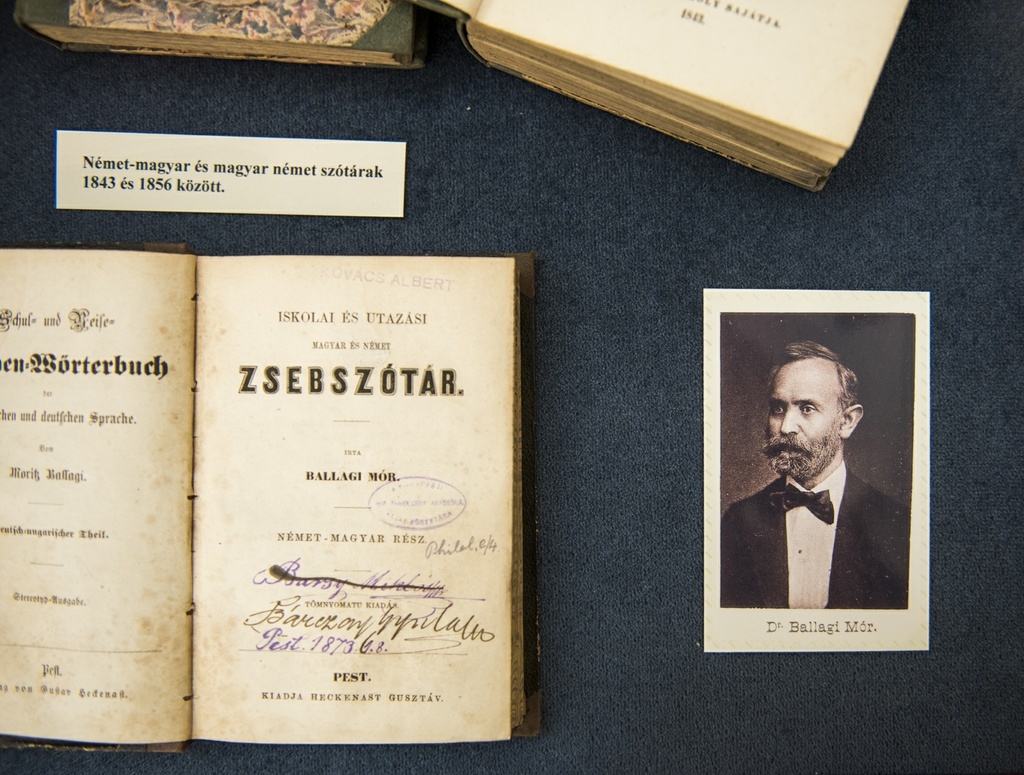 OLY SAJÁTJA.
1843.
Német-magyar és magyar német szótárak
1843 és 1856 között.
Schul= und Reise=
en=Wörterbuch
der
chen und deutschen Sprache.
Von
Moritz Ballagi.
eutsch=ungarischer Theil.
Stereotyp=Ausgabe.
Pest.
ag von Gustav Heckenast.
KOVÁCS ALBERT
ISKOLAI ÉS UTAZÁSI
MAGYAR ÉS NÉMET
ZSEBSZÓTÁR.
IRTA
BALLAGI MÓR.
NÉMET-MAGYAR RÉSZ.
Philol. 6/4
TÖMNYOMATU KIADÁS.
Bárczay
Pest. 1873.
PEST.
KIADJA HECKENAST GUSZTÁV.
Dr. Ballagi Mór.